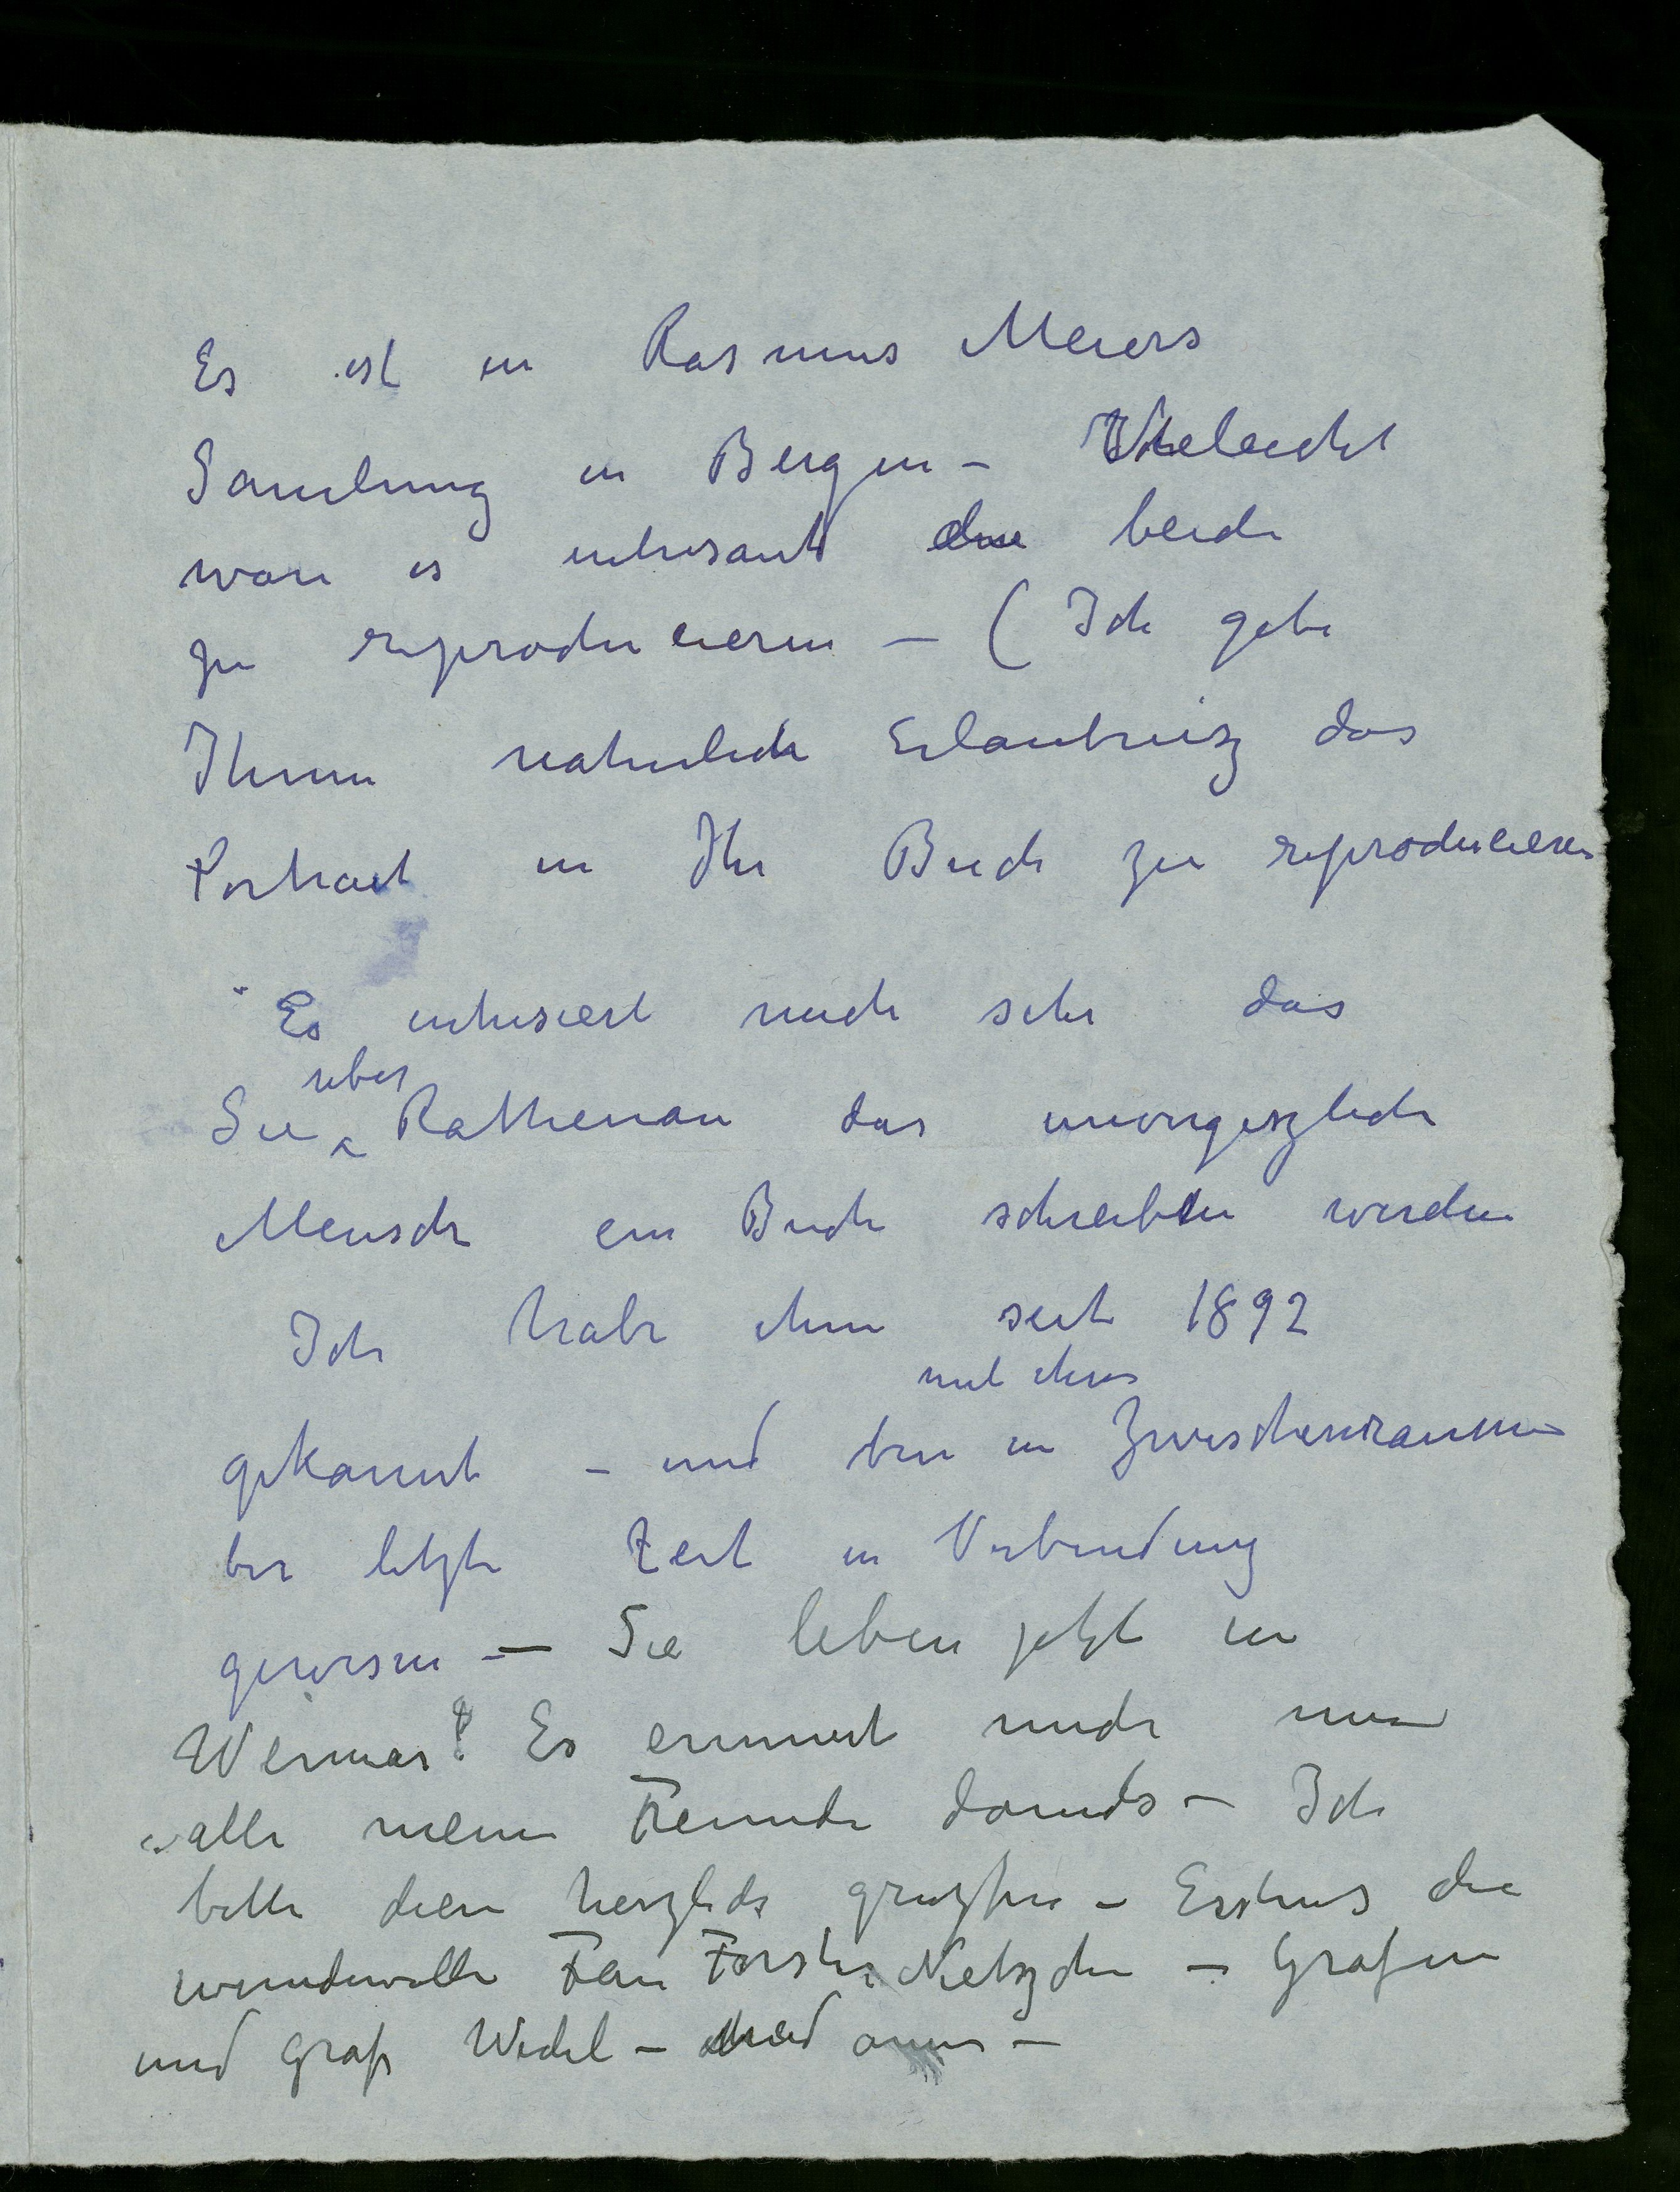 Es ist in Rasmus Meiers
Samlung in Bergen – Vieleicht
wäre es intresant die beide
zu reproducieren – ( Ich gebe
Ihnen naturlich Erlaubnisz das
Portrait in Ihr Buch zu reproducieren
Es intresiert mich sehr das
Sie über Rathenau das unvergeszliche
Mensch ein Buch schreiben werden
Ich habe ihm seit 1892
gekannt – und bin in Zwischenraumen mit ihm
bis letzte Zeit in Verbindung
gewesen – Sie leben jetzt in
Weimar! Es erinnert mich
alle meine Freunde – Ich
bitte herzlich – die
wundervolle Frau Förster Nietzsche – Grafin
und Graf Wedel –